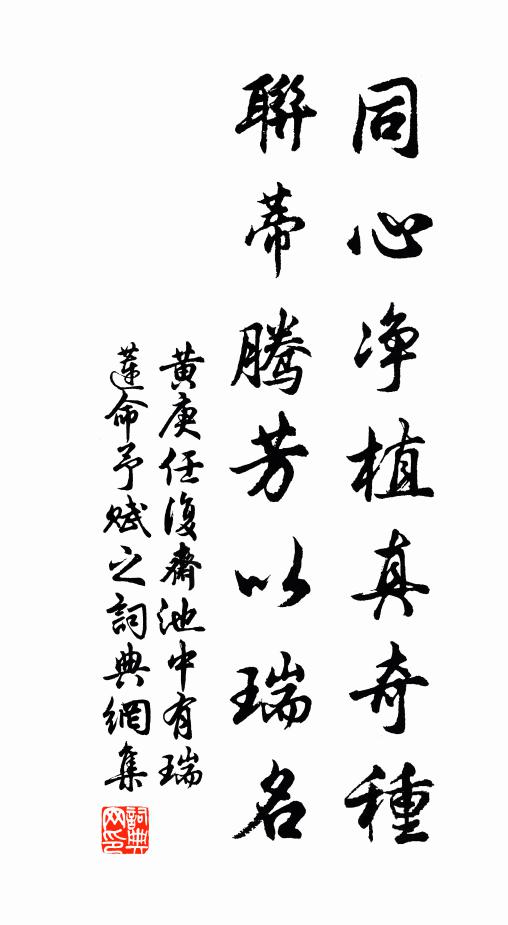 同心净植真奇種
聯蒂騰芳以瑞名
黄庚任復齋池中有瑞
蓮命予賦之詞典網集
詞典網印